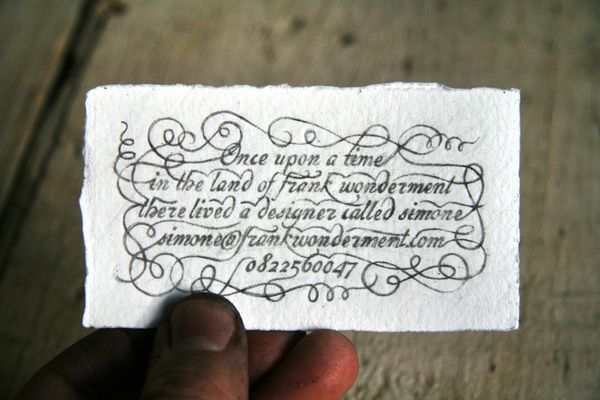 Once upon a time
in the land of frank wonderment
there lived a designer called simone
simone@frankwonderment.com
0822560047